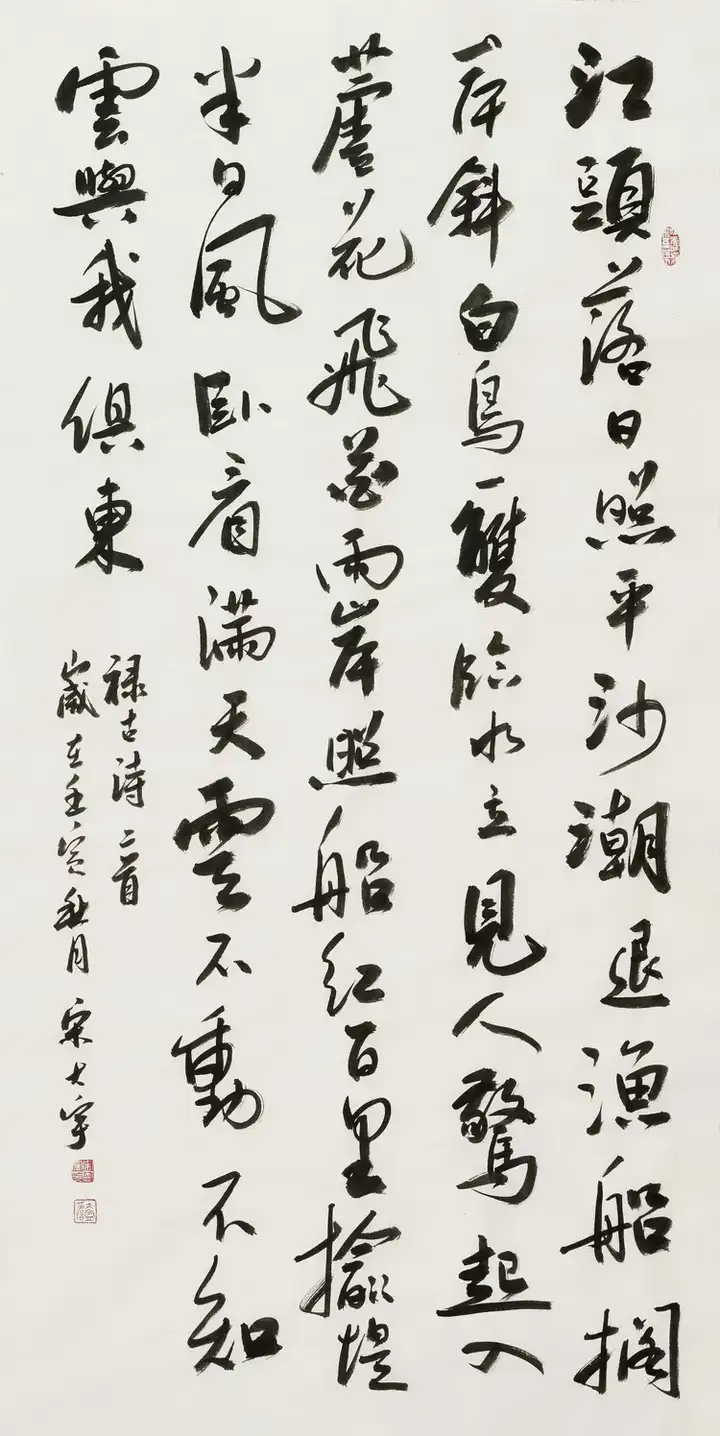 江頭落日照平沙潮退漁船擱
岸斜白鳥一雙臨水立見人驚起入
蘆花飛花兩岸照船紅百里榆堤
半日風卧看滿天雲不動不知
雲與我俱東
禄古詩二首
歲在壬寅秋月 宋大宇